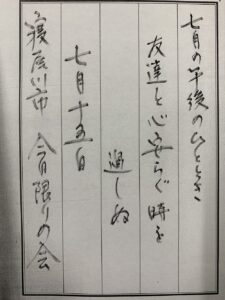 七月の午後のひととき
友達と心安らぐ時を
過しぬ
七月十五日
寝屋川市 今日限りの会